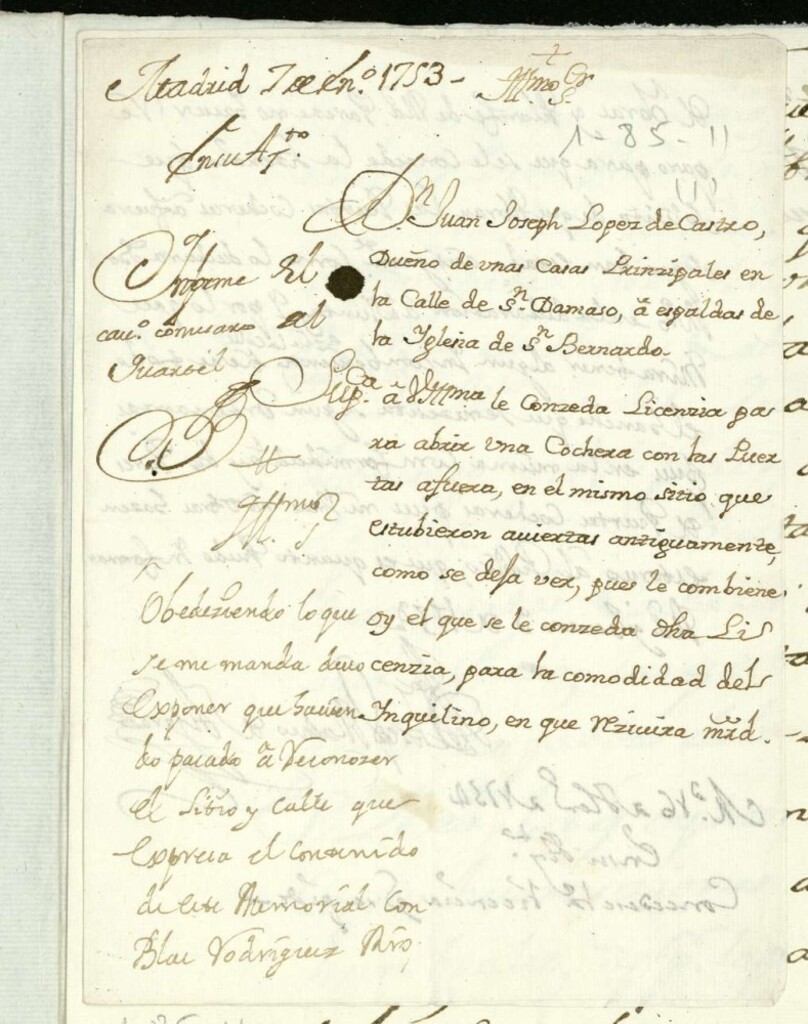 Madrid 7 de En.º 1753 -
Illmo Sr
1-85-11
En su Ay.to
D.n Juan Joseph Lopez de Castro,
Dueño de unas Casas Prinzipales en
la Calle de S.n Damaso, â espaldas de
la Yglesia de S.n Bernardo.
Supp.ca â V Illma le Conzeda Licenzia pa
ra abrir una Cochera con las Puer
tas afuera, en el mismo sitio que
estubieron aviertas antiguamente,
como se deja ver, pues le combiene
oy el que se le conzeda dha Li
cenzia, para la comodidad del
Inquilino, en que Rezivira mrd.
Ynforme El
cav.o comisario al
Quartel
Illmo S
Obedeziendo lo que
se me manda devo
Exponer que havien
do pasado â Reconozer
el Sitio y Calle que
Expresa el Contenido
de este Memorial con
Blas Rodriguez